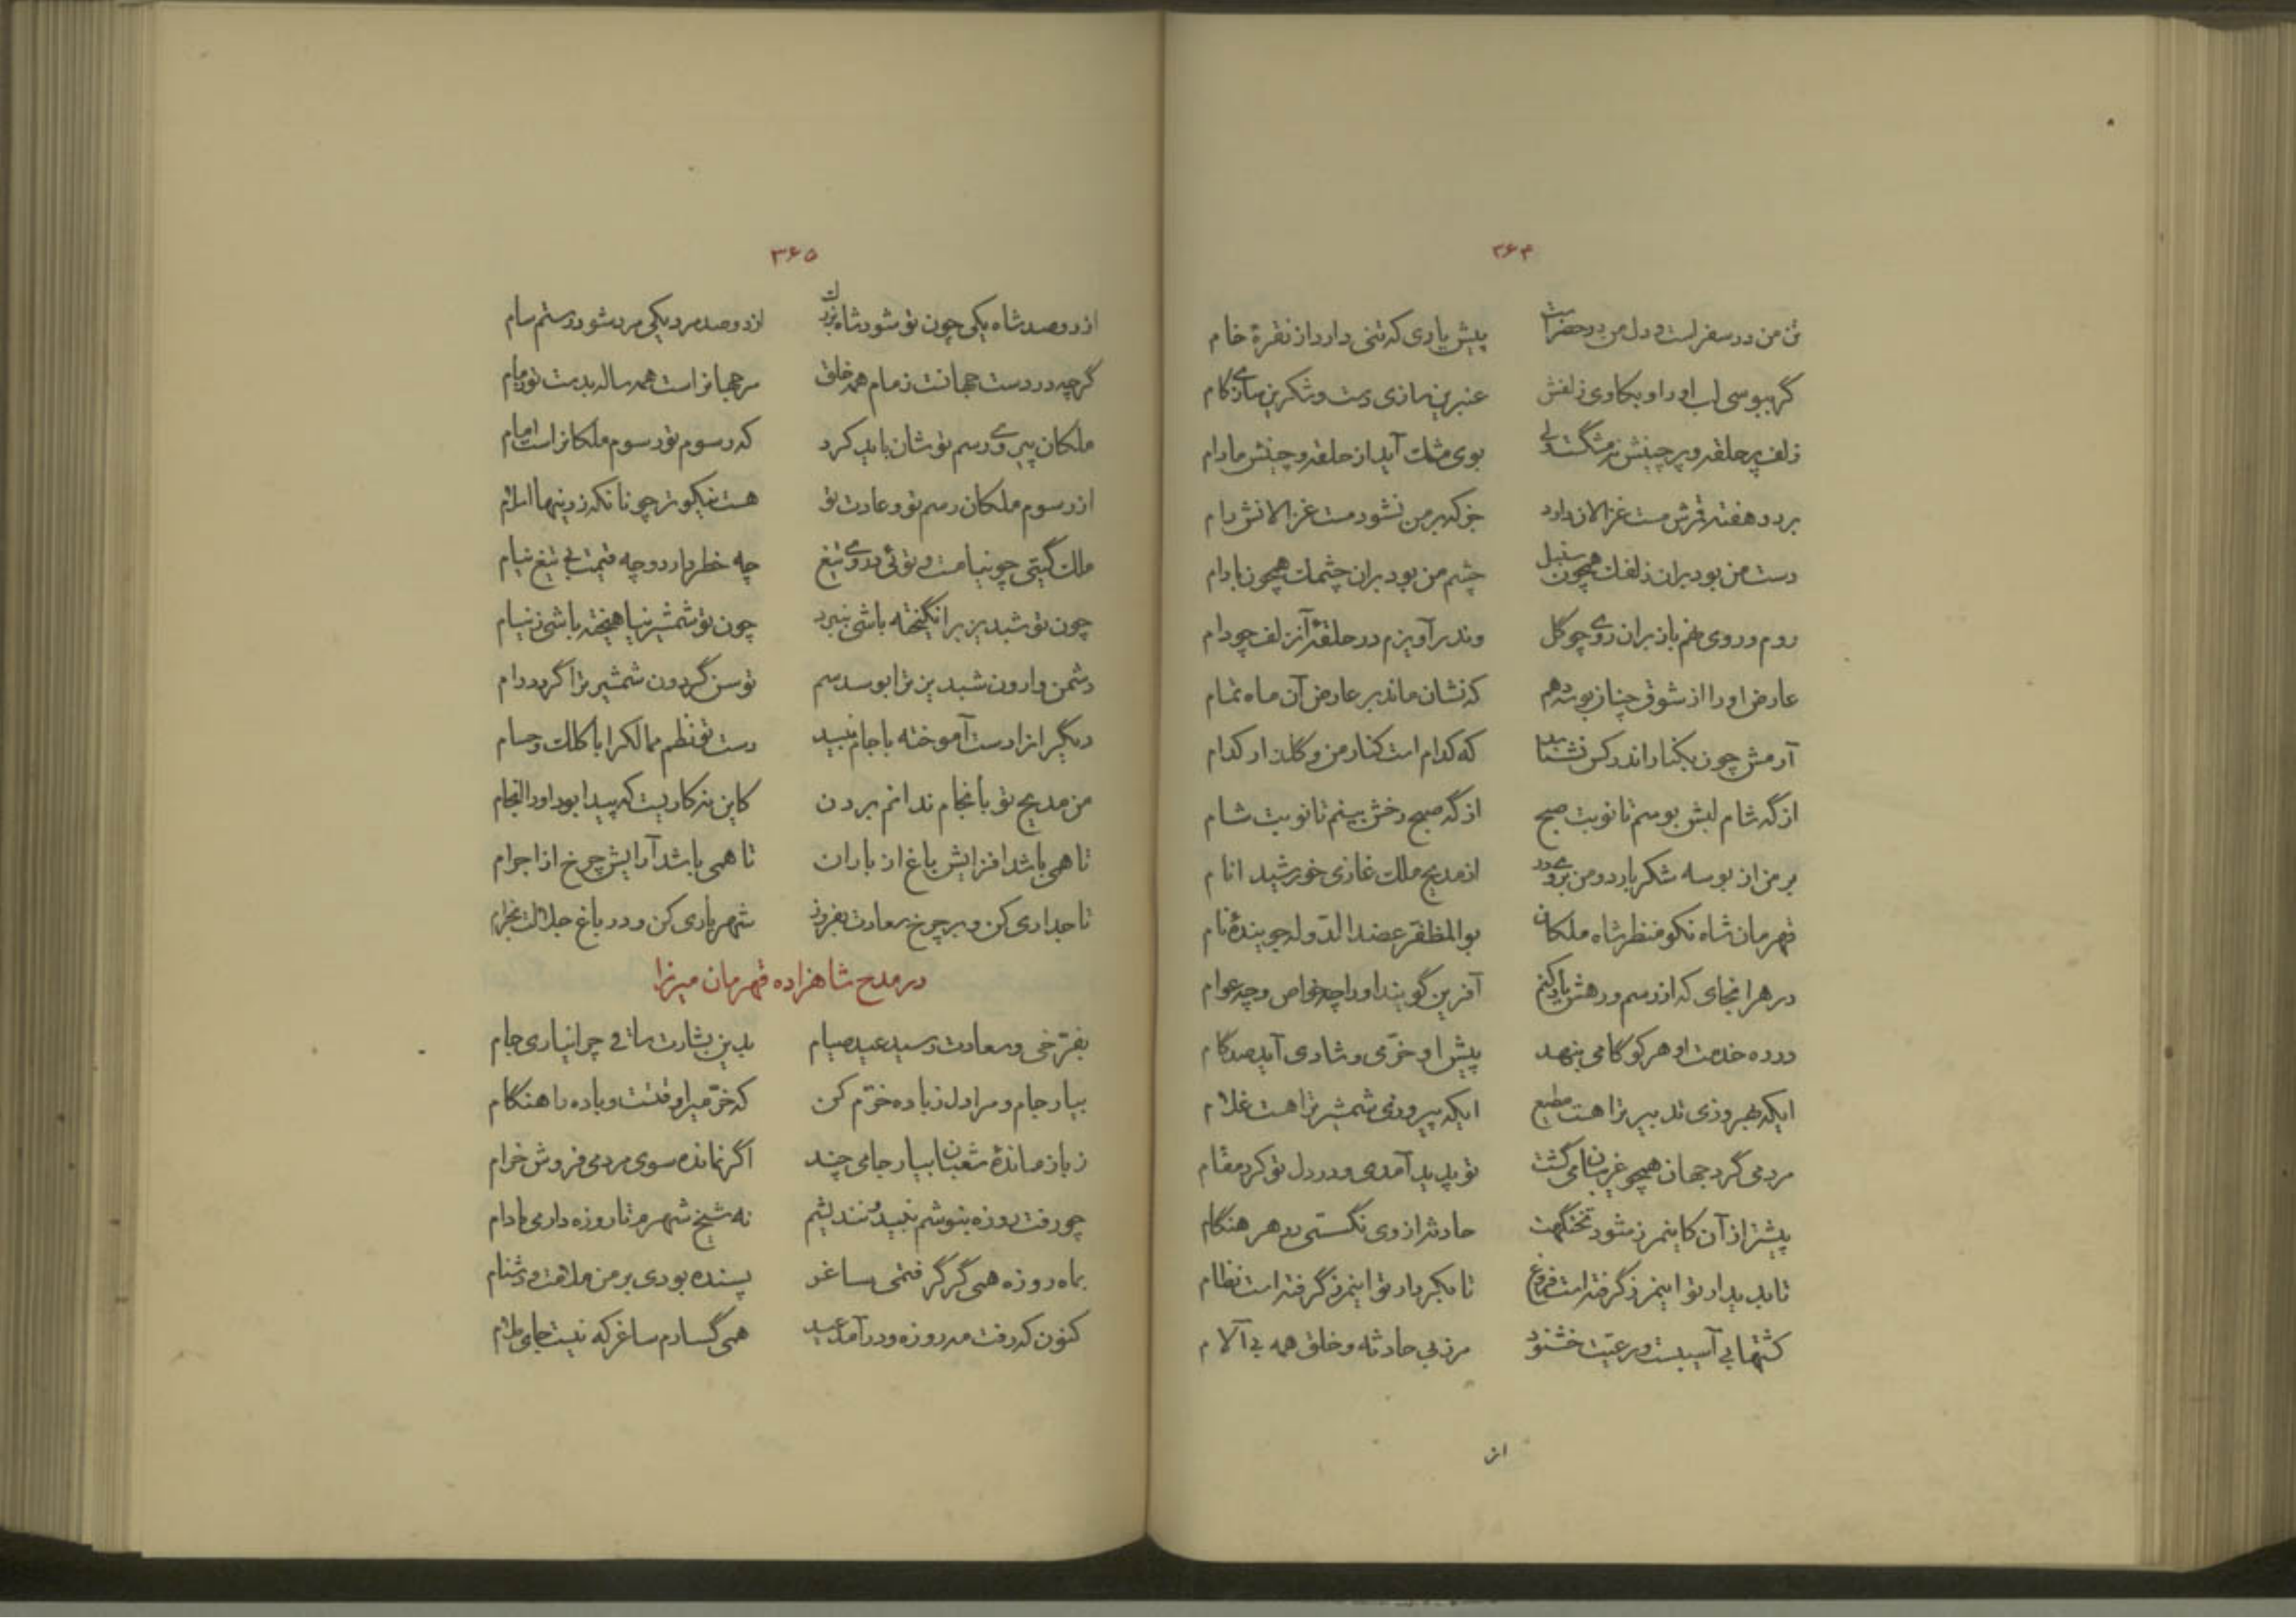 ۳۶۴
تن من در سفر است و دل من در حضر است پیش یاری که تنی دارد از نقرهٔ خام
گر ببوسی لب او را و بکاوی زلفش عنبرین سازی دست و شکرین سازی کام
زلف پر حلقه و پر چینش نه مشکست ولی بوی مشک آید از حلقه و چینش مادام
بر دو هفته قمرش مست غزالان دارد جز که بر من نشود مست غزالانش رام
دست من بود بران زلفک همچون سنبل چشم من بود بران چشمک همچون بادام
روم و روی نهم باز بران روی چو گل وندر آویزم در حلقهٔ آن زلف چو دام
عارض او را از شوق چنان بوسه دهم که نشان ماند بر عارض آن ماه تمام
آرمش چون بکنار اندر کس نشناسد که کدام است کنار من و گلنار کدام
از گه شام لبش بوسم تا نوبت صبح از گه صبح رخش بینم تا نوبت شام
بر من از بوسه شکر بارد و من بر وی در از مدیح ملک غازی خورشید انام
قهرمان شاه نکو منظر شاه ملکان بوالمظفر عضد الدوله جویندهٔ نام
در هر انجای که از رسم و رهش یاد کنم آفرین گویند او را چه خواص و چه عوام
در ره خدمت او هر کو گامی بنهد پیش او خرّمی و شادی آید صد گام
ایکه بهروزی تدبیر ترا هست مطیع ایکه پیروزی شمشیر ترا هست غلام
مردمی گرد جهان همچو غریبان می گشت تو پدید آمدی و در دل تو کرد مقام
پیشتر از آن کاینمرز شود تختگهت حادثه از وی نگسستی در هر هنگام
تا بدیدار تو اینمرز گرفته است فروغ تا بکردار تو اینمرز گرفته است نظام
کشتها بی آسیبست و رعیّت خشنود مرز بی حادثه و خلق همه بی آلام
از
۳۶۵
از دو صد شاه یکی چون تو شود شاه بزرگ از دو صد مرد یکی مرد شود رستم سام
گرچه در دست جهانت زمام همه خلق مر جهانرا است همه ساله بدست تو زمام
ملکان پیروی رسم تو شان باید کرد که رسوم تو رسوم ملکانرا است امام
از رسوم ملکان رسم تو و عادت تو هست نیکوتر چونانکه ز دینها اسلام
ملک گیتی چو نیامست و توئی در وی تیغ چه خطر دارد و چه قیمت بی تیغ نیام
چون تو شبدیز برانگیخته باشی بنبرد چون تو شمشیر بیاهیخته باشی ز نیام
دشمن وارون شبدیز ترا بوسد سم توسن گردون شمشیر ترا گردد رام
دیگرانرا دست آموخته با جام نبید دست تو نظم ممالک را با کلک و حسام
من مدیح تو بانجام ندانم بردن کاین نه کاریست که پیدا بود او را انجام
تا همی باشد افزایش باغ از باران تا همی باشد آرایش چرخ از اجرام
تاجداری کن و بر چرخ سعادت بفروز شهریاری کن و در باغ جلالت بخرام
در مدح شاهزاده قهرمان میرزا
بفرّخی و سعادت رسید عید صیام بدین بشارت ساقی چرا نیاری جام
بیار جام و مرا دل ز باده خرّم کن که خرّمیرا وقتست و باده را هنگام
ز باز ماندهٔ شعبان بیار جامی چند اگر نمانده سوی مردمی فروش خرام
چو رفت روزه بنوشم نبید و نندیشم نه شیخ شهرم تا روزه دارمی مادام
بماه روزه همی گر گرفتمی ساغر پسنده بودی بر من ملامت و دشنام
کنون که رفت مه روزه و در آمد عید همی گسارم ساغر که نیست جای ملام